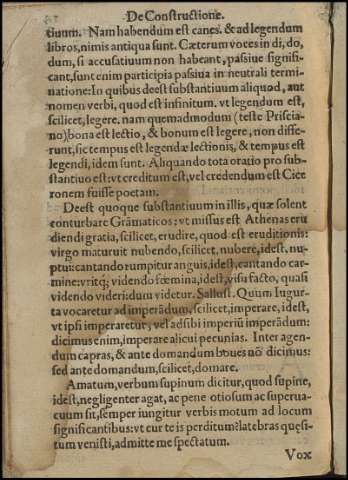 De Constructione.
tiuum. Nam habendum est canes. & ad legendum
libros, nimis antiqua sunt. Cæterum voces in di, do,
dum, si accusatiuum non habeant, passiue signifi-
cant, sunt enim participia passiua in neutrali termi-
natione: In quibus deest substantiuum aliquod, aut
nomen verbi, quod est infinitum. vt legendum est,
scilicet, legere. nam quemadmodum (teste Priscia-
no) bona est lectio, & bonum est legere, non diffe-
runt, sic tempus est legendæ lectionis, & tempus est
legendi, idem sunt. Aliquando tota oratio pro sub-
stantiuo est: vt creditum est, vel credendum est Cice
ronem fuisse poetam.
Deest quoque substantiuum in illis, quæ solent
conturbare Grãmaticos: vt missus est Athenas eru
diendi gratia, scilicet, erudire, quod est eruditionis:
virgo maturuit nubendo, scilicet, nubere, idest, nu-
ptui: cantando rumpitur anguis, idest, cantando car-
mine: vritq; videndo fœmina, idest, visu facto, quasi
videndo videri: dum videtur. Sallust. Quum Iugur-
ta vocaretur ad imperãdum, scilicet, imperare, idest,
vt ipsi imperaretur, vel ad sibi imperiũ imperãdum:
dicimus enim, imperare alicui pecunias. Inter agen-
dum capras, & ante domandum boues nõ dicimus:
sed ante domandum, scilicet, domare.
Amatum, verbum supinum dicitur, quod supine,
idest, negligenter agat, ac pene otiosum ac superua-
cuum sit, semper iungitur verbis motum ad locum
significantibus: vt cur te is perditum? latebras quęsi-
tum venisti, admitte me spectatum.
Vox